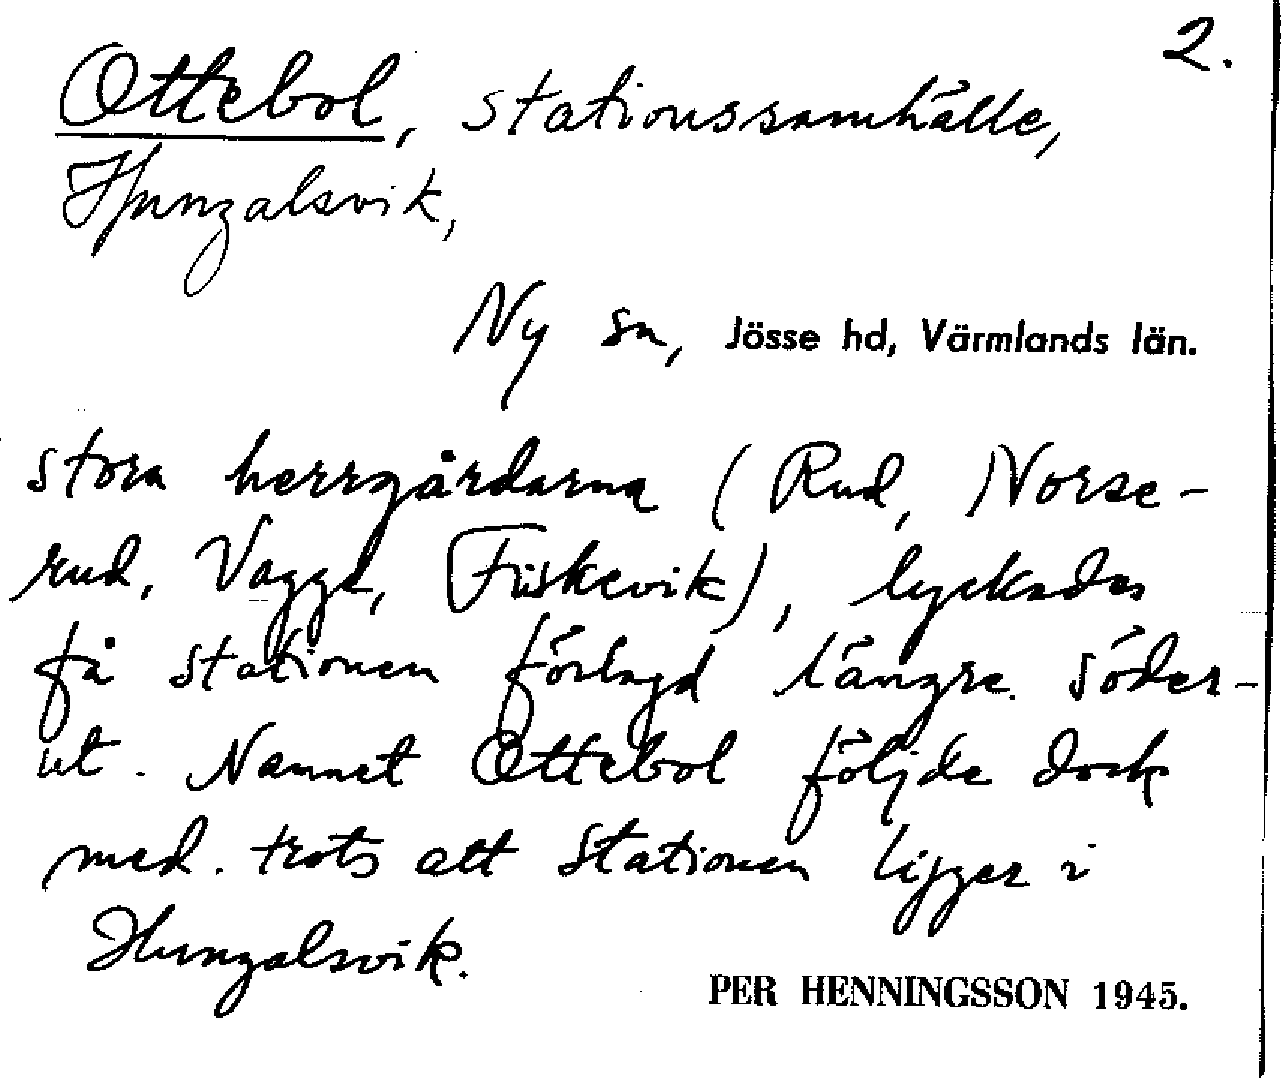 2.
Ottebol, stationssamhälle,
Hungalsvik,
Ny sn, Jösse hd, Värmlands län.
stora herrgårdarna (Rud, Norse-
rud, Vagge, Fiskevik), lyckades
få stationen förlagd längre söder-
ut. Namnet Ottebol följde dock
med. trots att stationen ligger i
Hungalsvik.
PER HENNINGSSON 1945.